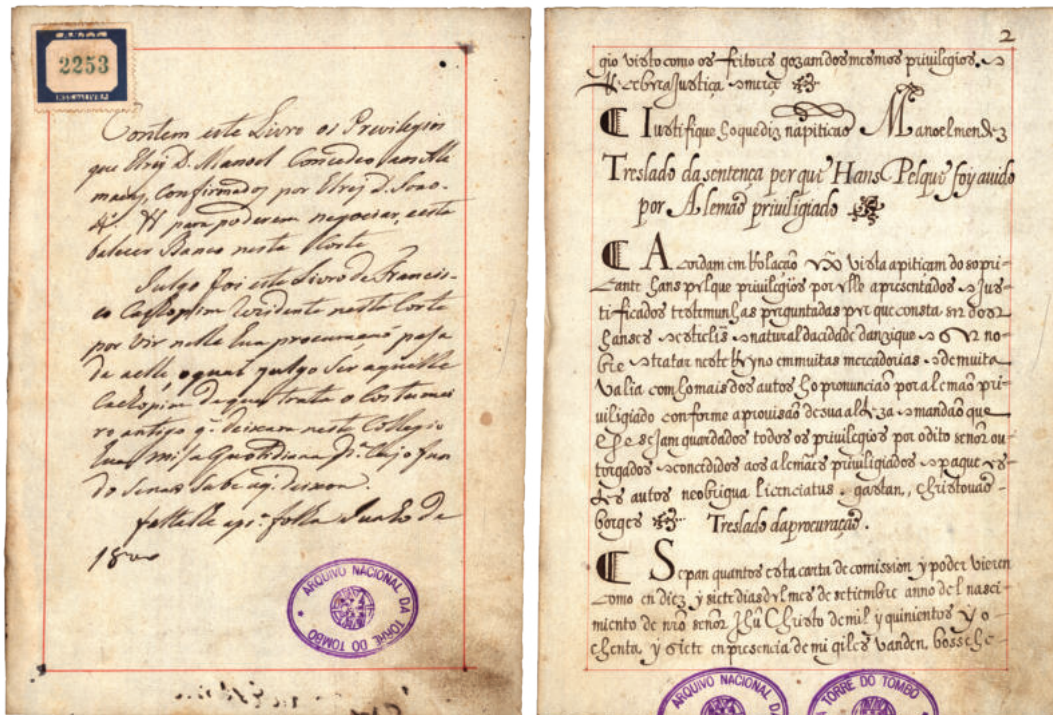 2253
Contem este Livro os Previlegios
que Elrej D. Manoel Concedeo aos Alle
maens, Confirmados por Elrej D. Joao
4º. para poderem negociar, esta
balecer Banco nesta Corte
Julgo foi este Livro de Francis-
co Cachopim Rezidente nesta Corte
por vir nelle hua procuração pasa
da a elle, o qual julgo ser aquelle
Cachopim de que trata o Costumei
ro antigo q. deixara neste Collegio
hua missa Quotidiana Cujo fun
do senão sabe aq. deixou.
faltalhe a pr.ª folha Junho de
ARQUIVO NACIONAL DA TORRE DO TOMBO
2
gio visto como os feitores gozam dos mesmos privilegios. e
Recebera Justiça e merce
Iustifique ho que diz na piticaõ Manoel mendez
Treslado da sentença per que Hans Pelque foy avido
por Alemaõ priviligiado
Acordam em Rolaçaõ vista a piticam do sopri-
cante hans pelque privilegios por elle apresentados e Jus-
tificados testemunhas preguntadas per que consta ser dos
hanses e natural da cidade danzique e
bre e tratar neste Reyno em muitas mercadorias e de muita
valia com ho mais dos autos ho pronunciaõ por alemaõ pri-
viligiado conforme a provisaõ de sua alteza e mandaõ que
lhe sejam guardados todos os privilegios por o dito senor ou-
torgados e concedidos aos alemães priviligiados e pague os
autos neobrigua licenciatus. gastan,, christovaõ
borges Treslado da procuraçaõ.
Sepan quantos esta carta de comission y poder vieren
como en diez y siete dias del mes de setiembre anno del nasci-
miento de nro senor Jhũ Christo de mil y quinientos y o-
chenta y siete en presencia de mi giles vanden bossche
ARQUIVO NACIONAL
TORRE DO TOMBO